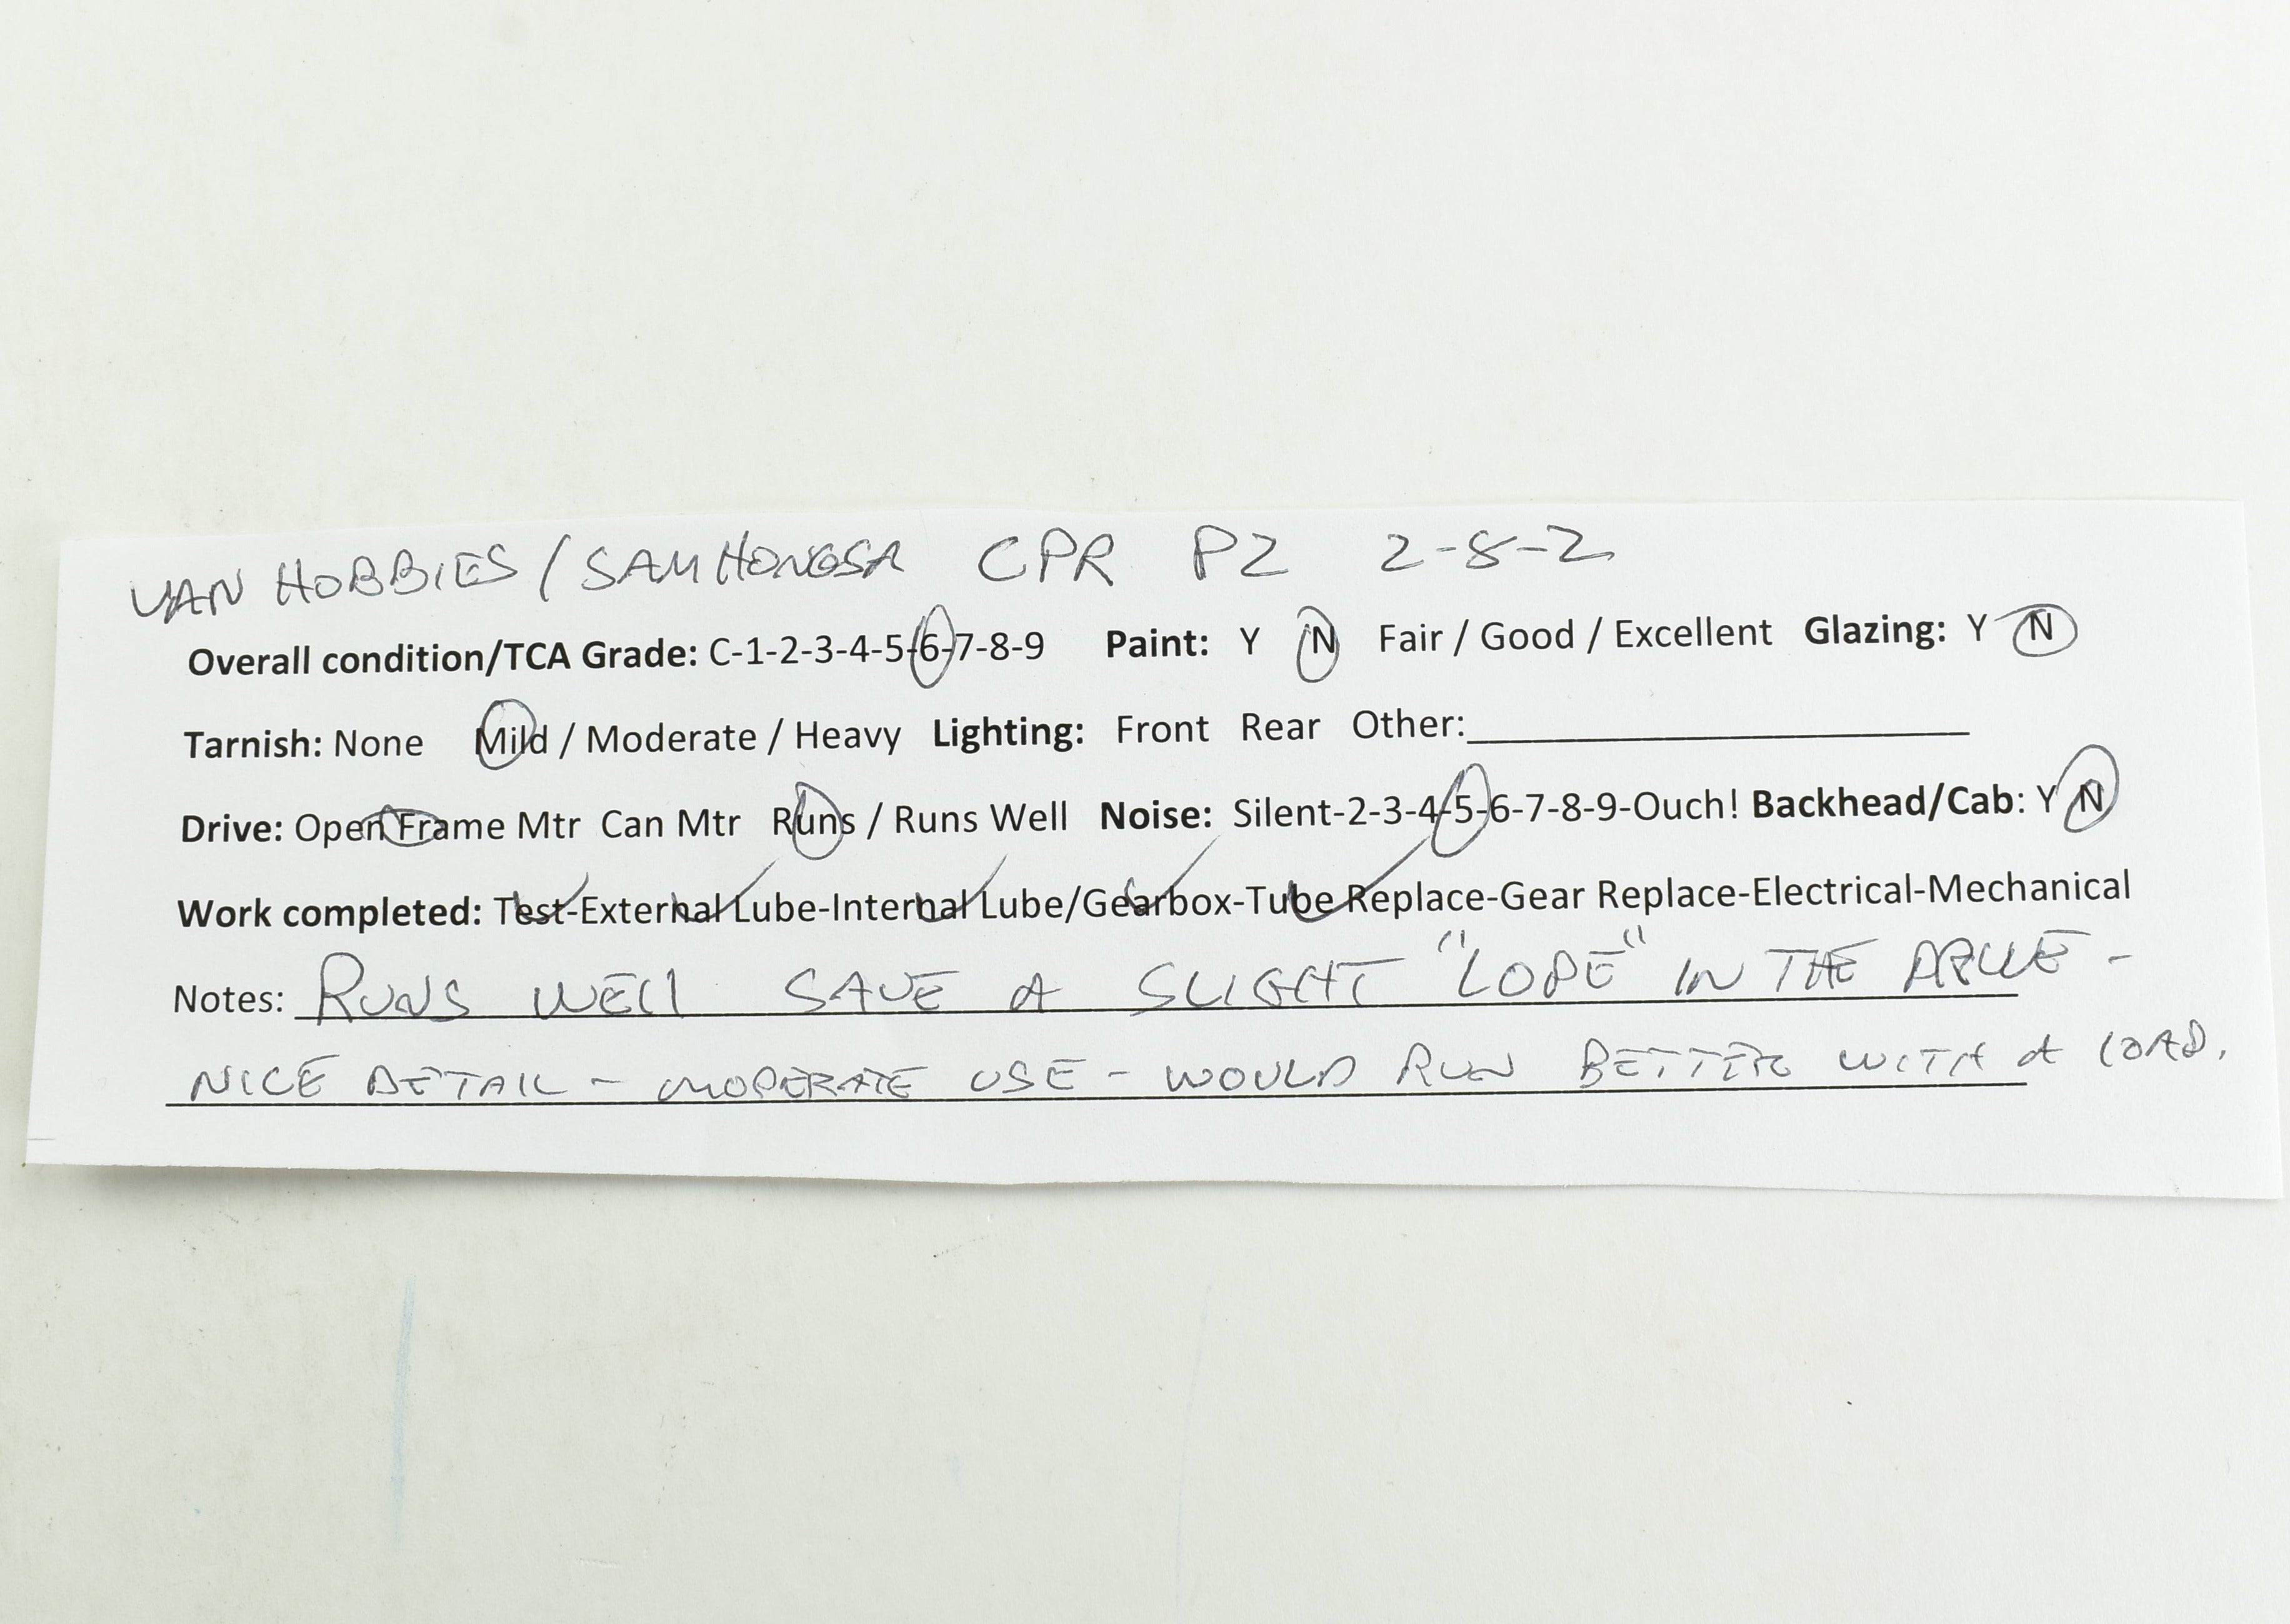 VAN HOBBIES / SAMHONGSA CPR P2 2-8-2
Overall condition/TCA Grade: C-1-2-3-4-5-6-7-8-9 Paint: Y N Fair / Good / Excellent Glazing: Y N
Tarnish: None Mild / Moderate / Heavy Lighting: Front Rear Other:
Drive: Open Frame Mtr Can Mtr Runs / Runs Well Noise: Silent-2-3-4-5-6-7-8-9-Ouch! Backhead/Cab: Y N
Work completed: Test-External Lube-Internal Lube/Gearbox-Tube Replace-Gear Replace-Electrical-Mechanical
Notes: RUNS WELL SAVE A SLIGHT "LOPE" IN THE DRIVE -
NICE DETAIL - MODERATE USE - WOULD RUN BETTER WITH A LOAD.